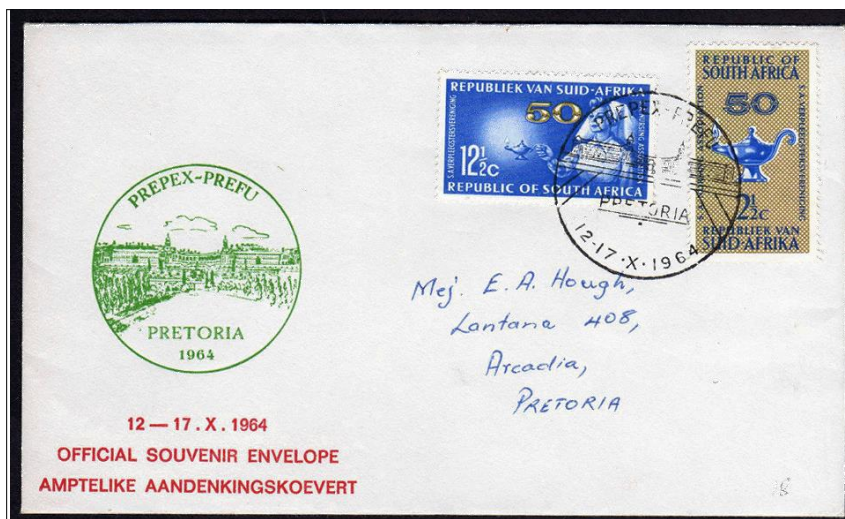 REPUBLIEK VAN SUID-AFRIKA
50
S.A. VERPLEEGSTERSVERENIGING
12½c
REPUBLIC OF SOUTH AFRICA
REPUBLIC OF
SOUTH AFRICA
50
S.A. VERPLEEGSTERSVERENIGING
2½c
REPUBLIEK VAN
SUID-AFRIKA
PREPEX-PREFU
PRETORIA
12-17·X·1964
PREPEX-PREFU
PRETORIA
1964
Mej. E. A. Hough,
Lantana 408,
Arcadia,
PRETORIA
12 — 17 . X . 1964
OFFICIAL SOUVENIR ENVELOPE
AMPTELIKE AANDENKINGSKOEVERT